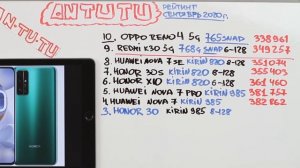 ANTUTU
РЕЙТИНГ
СЕНТЯБРЬ 2020г.
AN-TU-TU
10. OPPO RENO 4 5G 765 SNAP 338961
9. REDMI K30 5G 768G SNAP 6-128 349257
8. HUAWEI NOVA 7 SE KIRIN 820 8-128 351074
7. HONOR 30S KIRIN 820 8-128 355403
6. HONOR X10 KIRIN 820 6-128 361460
5. HUAWEI NOVA 7 PRO KIRIN 985 381757
4. HUAWEI NOVA 7 KIRIN 985 382862
3. HONOR 30 KIRIN 985 8-128